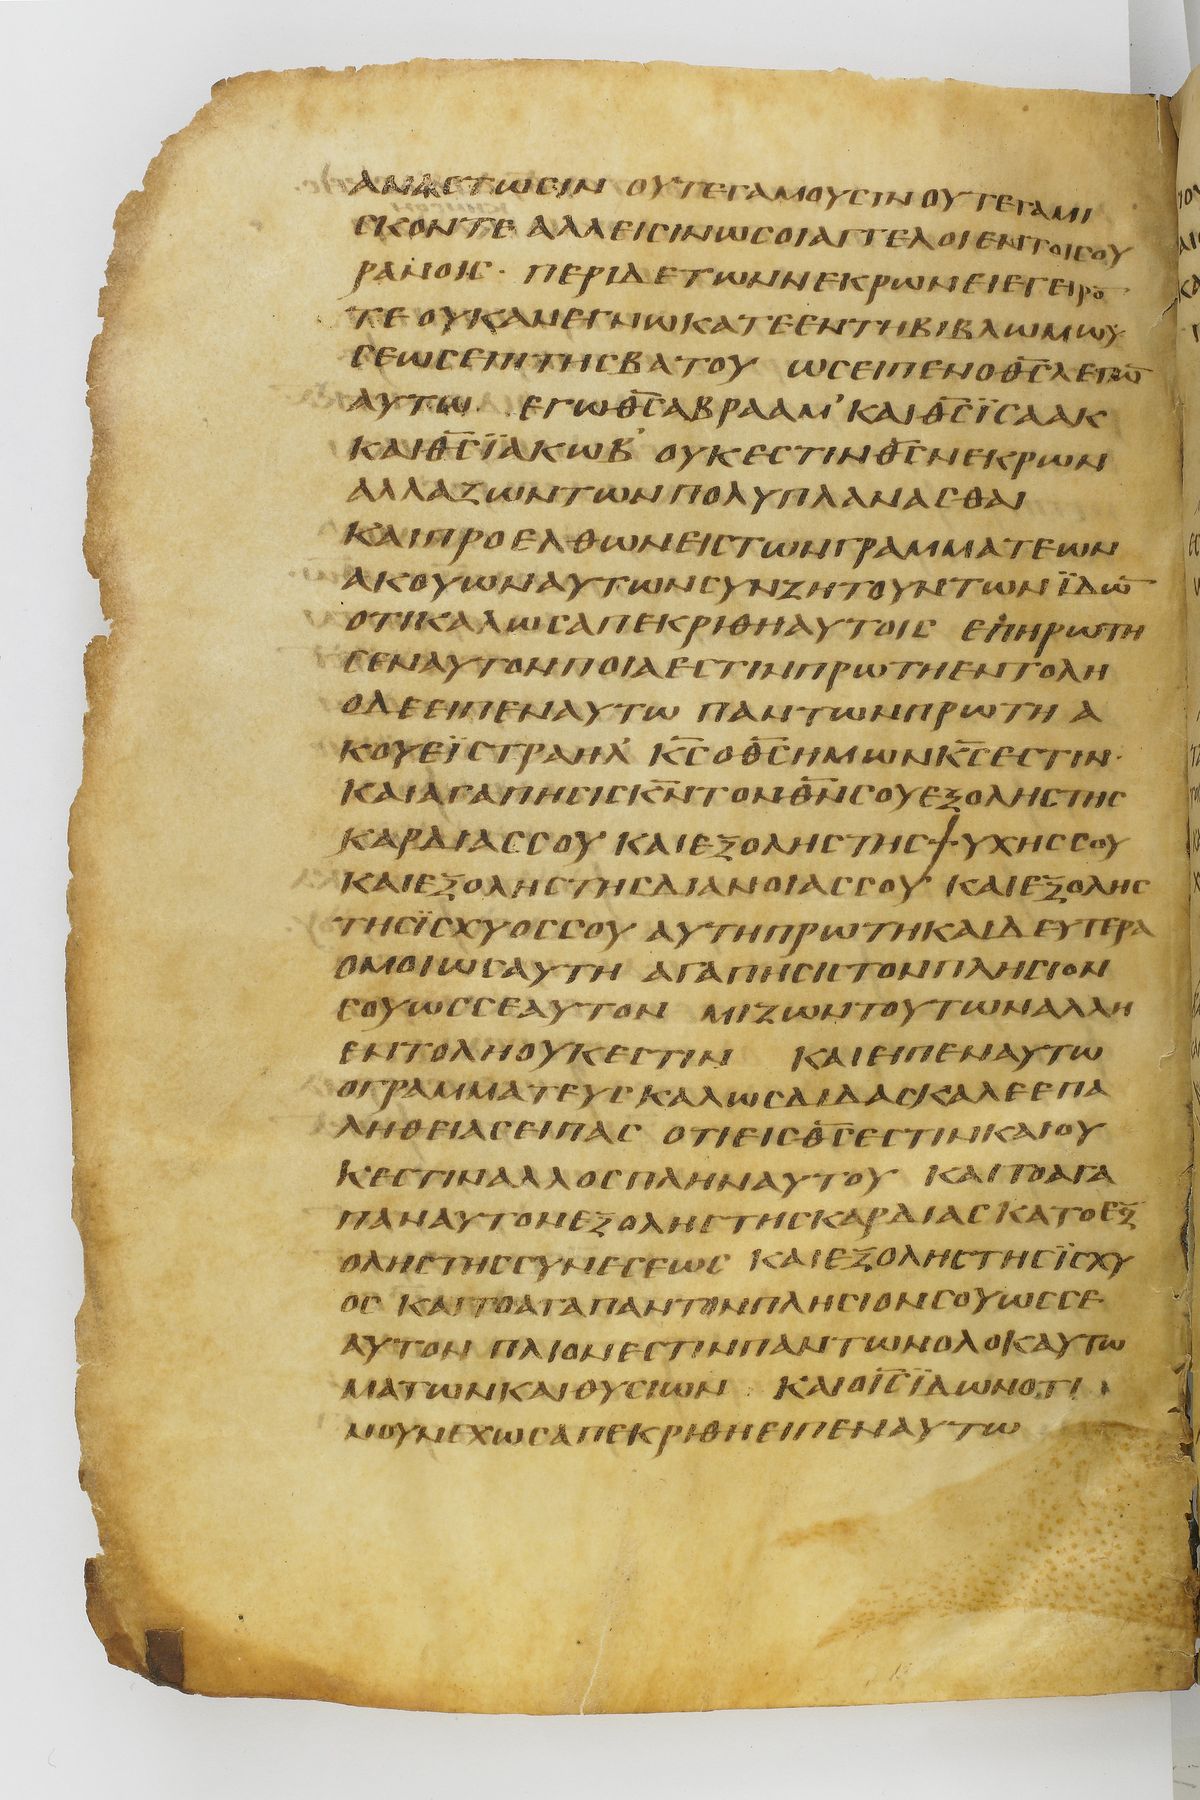 ΑΝΑСΤΩСΙΝ ΟΥΤΕΓΑΜΟΥСΙΝΟΥΤΕΓΑΜΙ
СΚΟΝΤΕ ΑΛΛΕΙСΙΝΩСΟΙΑΓΓΕΛΟΙΕΝΤΟΙСΟΥ
ΡΑΝΟΙС · ΠΕΡΙΔΕΤΩΝΝΕΚΡΩΝΕΙΕΓΕΙΡΟ̅
ΤΕ ΟΥΚΑΝΕΓΝΩΚΑΤΕΕΝΤΗΒΙΒΛΩΜΩΥ
СΕΩСΕΠΙΤΗСΒΑΤΟΥ ΩСΕΙΠΕΝΟΘ̅С̅ΛΕΓΩ̅
ΑΥΤΩ ΕΓΩΘ̅С̅ΑΒΡΑΑΜ’ ΚΑΙΘ̅С̅ΪСΑΑΚ
ΚΑΙΘ̅С̅ΪΑΚΩΒ’ ΟΥΚΕСΤΙΝΘ̅С̅ΝΕΚΡΩΝ
ΑΛΛΑΖΩΝΤΩΝΠΟΛΥΠΛΑΝΑСΘΑΙ
ΚΑΙΠΡΟΕΛΘΩΝΕΙСΤΩΝΓΡΑΜΜΑΤΕΩΝ
ΑΚΟΥΩΝΑΥΤΩΝСΥΝΖΗΤΟΥΝΤΩΝ ΪΔΩ̅
ΟΤΙΚΑΛΩСΑΠΕΚΡΙΘΗΑΥΤΟΙС ΕΠΗΡΩΤΗ
СΕΝΑΥΤΟΝΠΟΙΑΕСΤΙΝΠΡΩΤΗΕΝΤΟΛΗ
ΟΔΕΕΙΠΕΝΑΥΤΩ ΠΑΝΤΩΝΠΡΩΤΗ Α
ΚΟΥΕΪСΤΡΑΗΛ’ Κ̅С̅ΟΘ̅С̅ΗΜΩΝΚ̅С̅ΕСΤΙΝ·
ΚΑΙΑΓΑΠΗСΙСΚ̅Ν̅ΤΟΝΘ̅Ν̅СΟΥΕΞΟΛΗСΤΗС
ΚΑΡΔΙΑССΟΥ ΚΑΙΕΞΟΛΗСΤΗСΨΥΧΗССΟΥ
ΚΑΙΕΞΟΛΗСΤΗСΔΙΑΝΟΙΑССΟΥ ΚΑΙΕΞΟΛΗС
ΤΗСΪСΧΥΟССΟΥ ΑΥΤΗΠΡΩΤΗΚΑΙΔΕΥΤΕΡΑ
ΟΜΟΙΩСΑΥΤΗ ΑΓΑΠΗСΙСΤΟΝΠΛΗСΙΟΝ
СΟΥΩССΕΑΥΤΟΝ ΜΙΖΩΝΤΟΥΤΩΝΑΛΛΗ
ΕΝΤΟΛΗΟΥΚΕСΤΙΝ ΚΑΙΕΙΠΕΝΑΥΤΩ
ΟΓΡΑΜΜΑΤΕΥСΚΑΛΩСΔΙΔΑСΚΑΛΕΕΠΑ
ΛΗΘΕΙΑСΕΙΠΑС ΟΤΙΕΙСΘ̅С̅ΕСΤΙΝΚΑΙΟΥ
ΚΕСΤΙΝΑΛΛΟСΠΛΗΝΑΥΤΟΥ ΚΑΙΤΟΑΓΑ
ΠΑΝΑΥΤΟΝΕΞΟΛΗСΤΗСΚΑΡΔΙΑС ΚΑΤΟΕΞ
ΟΛΗСΤΗССΥΝΕСΕΩС ΚΑΙΕΞΟΛΗСΤΗСΪСΧΥ
ΟС ΚΑΙΤΟΑΓΑΠΑΝΤΟΝΠΛΗСΙΟΝСΟΥΩССΕ
ΑΥΤΟΝ ΠΛΙΟΝΕСΤΙΝΠΑΝΤΩΝΟΛΟΚΑΥΤΩ
ΜΑΤΩΝΚΑΙΘΥСΙΩΝ ΚΑΙΟΙ̅С̅ΪΔΩΝΟΤΙ
ΝΟΥΝΕΧΩСΑΠΕΚΡΙΘΗΕΙΠΕΝΑΥΤΩ